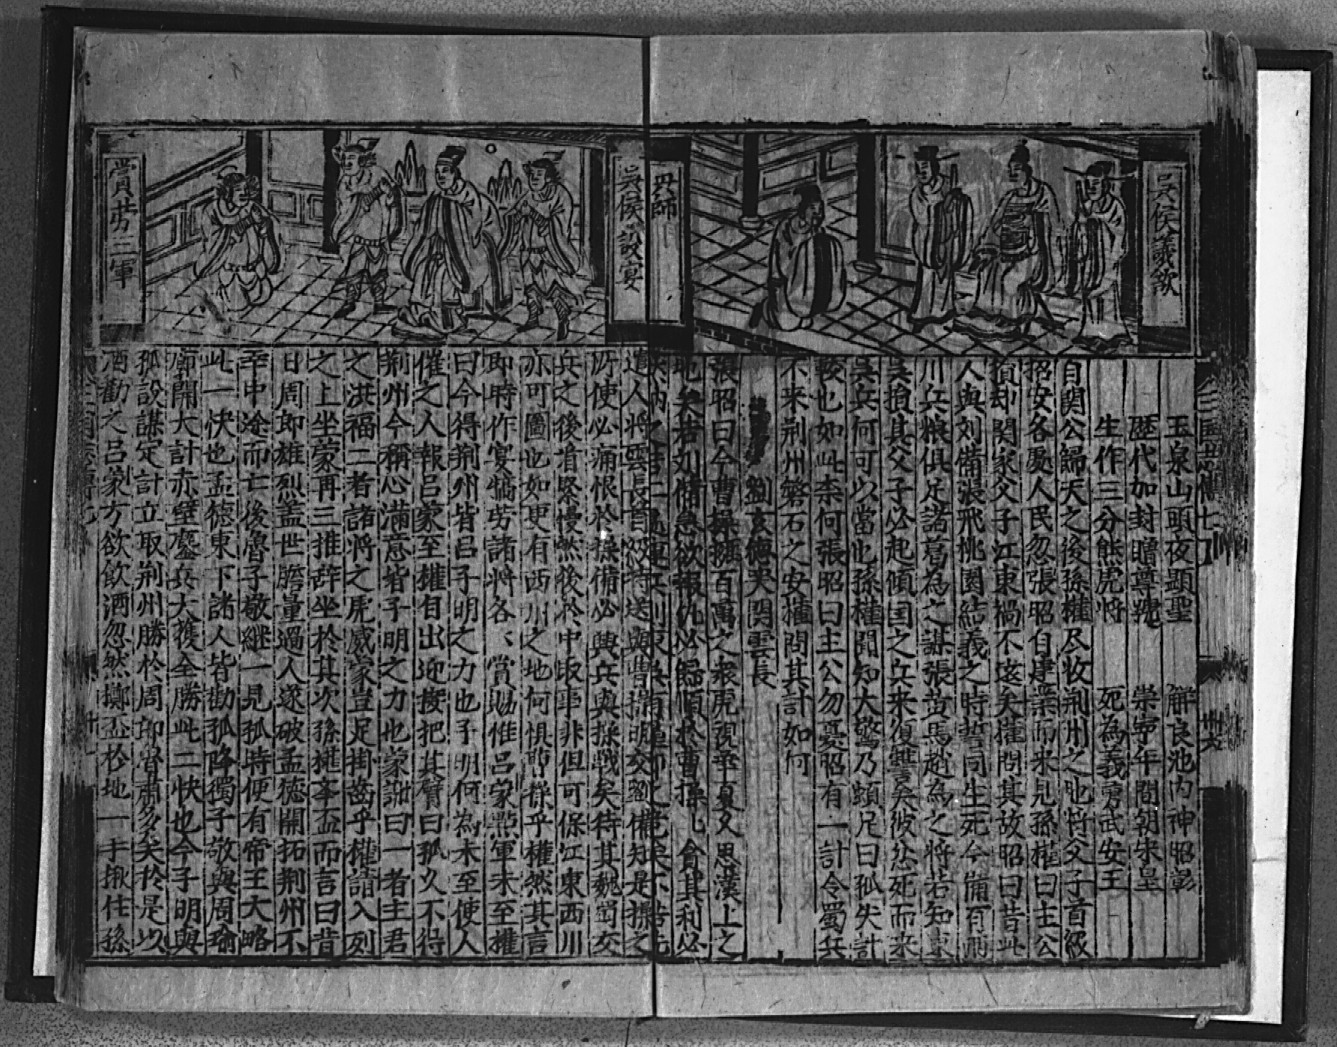 吳侯議欽
興師
玉泉山頭夜顯聖　解良池內神昭彰
歷代加封贈尊號　崇寧年間朝宋皇
生作三分熊虎將　死為義勇武安王
自関公歸天之後孫權尽收荊州之地將父子首級
招安各處人民忽張昭自建業而來見孫權曰主公
損却関家父子江東禍不遠矣權問其故昭曰昔此
人與刘備張飛桃園結義之時誓同生死今備有兩
川兵粮俱足諸葛為之謀張黄馬趙為之將若知東
吳損其父子必起傾国之兵來復讐矣彼忿死而來
吳兵何可以當也孫權聞知大驚乃頓足曰孤失計
較也如此柰何張昭曰主公勿憂昭有一計令蜀兵
不來荊州磐石之安權問其計如何
劉玄德哭関雲長
張昭曰今曹操擁百萬之衆虎視華夏久思漢上之
地矣若刘備急欲報仇必歸順於曹操七貪其利必
遣人將雲長首級轉送與曹操明交劉備知是操之
所使必痛恨於操備必興兵與操戰矣待其魏蜀交
兵之後看緊慢然後於中取事非但可保江東西川
亦可圖也如更有西川之地何惧曹操乎權然其言
即時作宴犒劳諸將各〻賞賜惟呂蒙㸃軍未至權
曰今得荊州皆呂子明之力也子明何為未至使人
催之人報呂蒙至權自出迎接把其臂曰孤久不得
荊州今稱心滿意皆子明之力也蒙謝曰一者主君
之洪福二者諸將之虎威蒙豈足掛齒乎權請入列
之上坐蒙再三推辞坐於其次孫權舉盃而言曰昔
日周郎雄烈盖世膽量過人遂破孟德開拓荊州不
幸中途而亡後魯子敬継一見孤時便有帝王大略
此一快也孟德東下諸人皆勸孤降獨子敬與周瑜
廊開大計赤壁鏖兵大獲全勝此二快也今子明與
孤設謀定計立取荊州勝於周郎魯肅多矣於是以
酒勸之呂蒙方欲飲酒忽然擲盃於地一手揪住孫
吳侯設宴
賞劳三軍